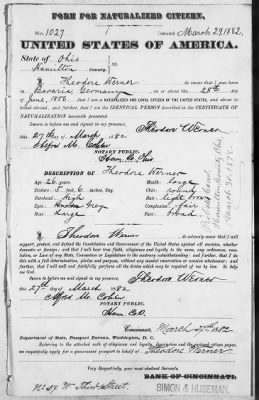 FORM FOR NATURALIZED CITIZEN.
No. 1027 Issued March 29 1882.
UNITED STATES OF AMERICA.
State of Ohio
Hamilton County
I Theodore Werner do swear that I was born
in Bavaria Germany on the 28th day
of June 1856 that I am a NATURALIZED AND LOYAL CITIZEN OF THE UNITED STATES, and about to
travel abroad; and further, that I am the IDENTICAL PERSON described in the CERTIFICATE OF
NATURALIZATION herewith presented.
Sworn to before me and signed in my presence, this
27th day of March 1882 Theodore Werner
NOTARY PUBLIC.
Ham. Co. Ohio
DESCRIPTION OF Theodore Werner
Age 26 years. Mouth large
Stature 5 feet 6 inches, Eng. Chin round
Forehead high Hair light brown
Eyes Grey Complexion fair
Nose Large Face round
I Theodore Werner do solemnly swear that I will
support, protect, and defend the Constitution and Government of the United States against all enemies, whether
domestic or foreign; and that I will bear true faith, allegiance and loyalty to the same, any ordinance, reso-
lution, or Law of any State, Convention or Legislature to the contrary notwithstanding; and further, that I do
this with a full determination, pledge and purpose, without any mental reservation or evasion whatsoever; and
further, that I will well and faithfully perform all the duties which may be required of me by law. So help
me God.
Sworn to before me and signed in my presence, this Theodore Werner
27th day of March 1882
NOTARY PUBLIC.
Ham Co O.
Cincinnati, March 27th 1882
Department of State, Passport Bureau, Washington, D. C.
Referring to the attached oath of allegiance and loyalty, description and the enclosed citizen paper,
we respectfully apply for a government passport in behalf of Theodore Werner
Very respectfully, your most obedient Servants.
BANK OF CINCINNATI.
SIMON & HUSEMAN.
57 W Third Street.